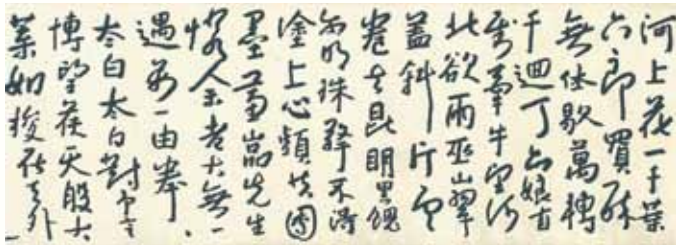 河上花一千葉
六郎買醉
無休歇萬轉
千迴丁六娘直
到牽牛望河
北欲雨巫山翠
蓋斜片雲
卷去昆明黑饋
尔明珠擎不得
塗上心頭共團
墨蕙嵒先生
憐余老大無一
遇万一由拳
太白太白對予言
博望侯天般大
葉如梭在天外